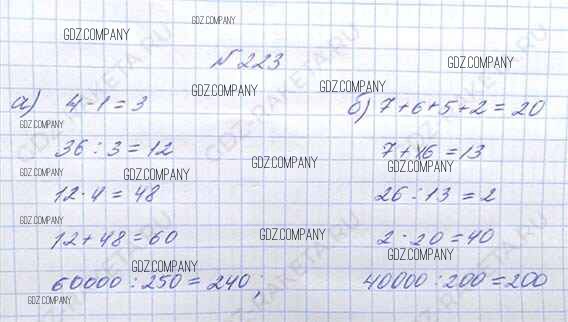 GDZ.COMPANY
GDZ.COMPANY
N 223
GDZ.COMPANY
а) 4-1=3
GDZ.COMPANY
GDZ.COMPANY
б) 7+6+5+2=20
GDZ.COMPANY
36:3=12
7+16=13
GDZ.COMPANY
GDZ.COMPANY
GDZ.COMPANY
GDZ.COMPANY
12·4=48
26:13=2
GDZ.COMPANY
12+48=60
GDZ.COMPANY
2·20=40
GDZ.COMPANY
GDZ.COMPANY
60000:250=240;
40000:200=200
GDZ.COMPANY
GDZ-RAKETA.RU